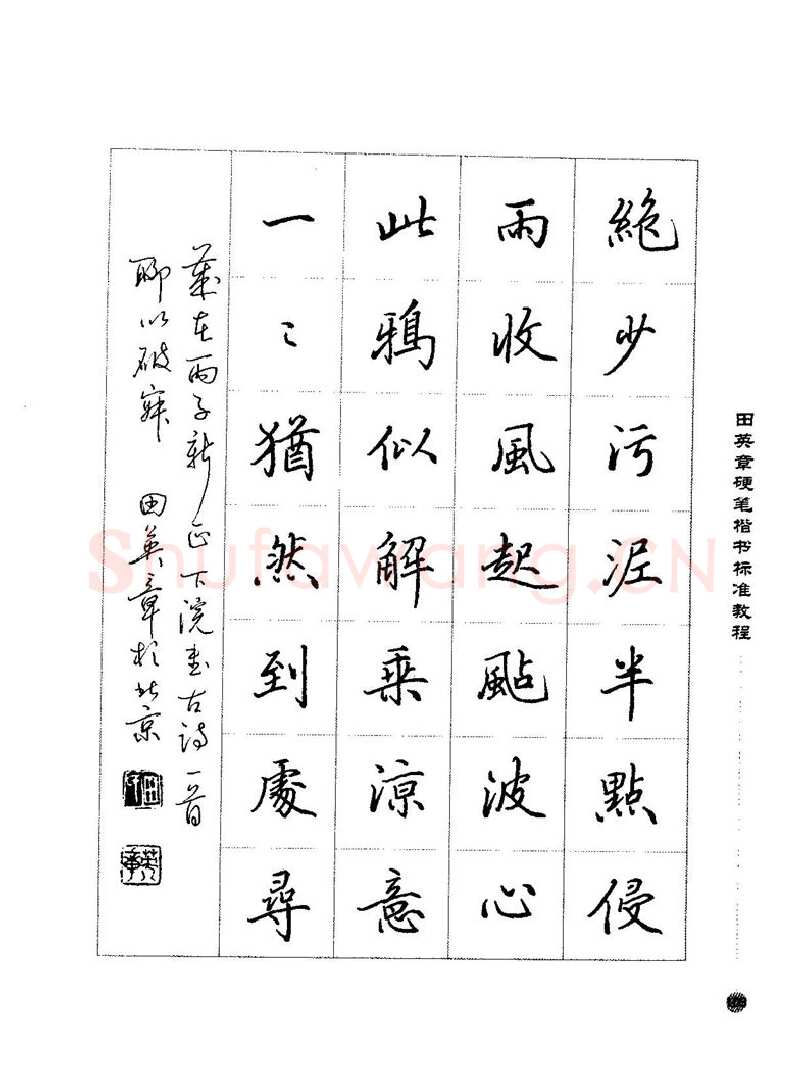 絶少污泥半點侵
雨收風起颭波心
此鴉似解乘凉意
一〻猶然到處尋
歲在丙子新正下浣書古詩一首
聊以破寂 田英章於北京
田英章硬笔楷书标准教程
Shufawang.CN